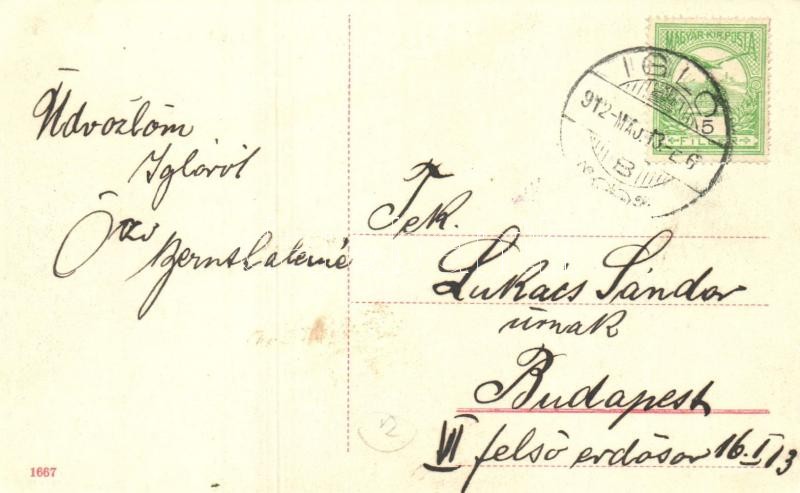 Üdvözlöm
Iglóról
Özv
MAGYAR KIR. POSTA
5
FILLÉR
IGLÓ
912-MÁJ.13.-E.6
B
Tek.
Lukács Sándor
úrnak
Budapest
VI felső erdősor 16. I 13
1667